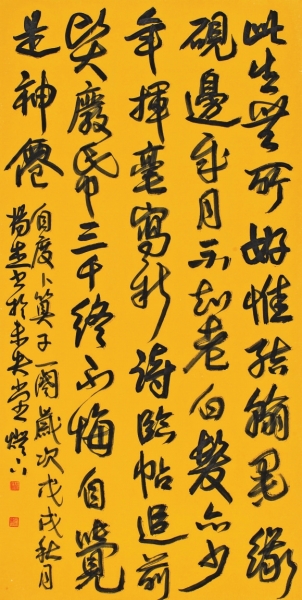 此生無所好惟結翰墨緣
硯邊歲月不知老白髮亦少
年揮毫寫新詩臨帖追前
賢廢帋三千終不悔自覺
是神僊
自度卜算子一闋歲次戊戌秋月
楊於未央堂燈下